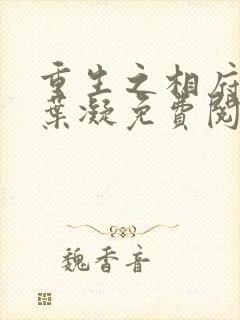 重生之相府
葉凝免費閱
魏香音